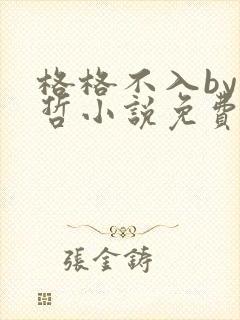 格格不入by
哲小説免費
張金鋳